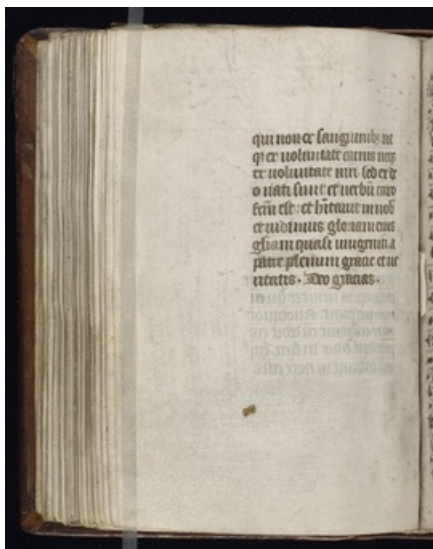 qui non ex sanguinibꝫ ne
qꝫ ex uoluntate carnis neqꝫ
ex uoluntate uiri sed ex de
o nati sunt et uerbū caro
fcm̄ est : et hītauit in nob
et uidimus gloriam eius
gl̄iam quasi unigeniti a
patre plenum gracie et ue
ritatis . Deo gracias .